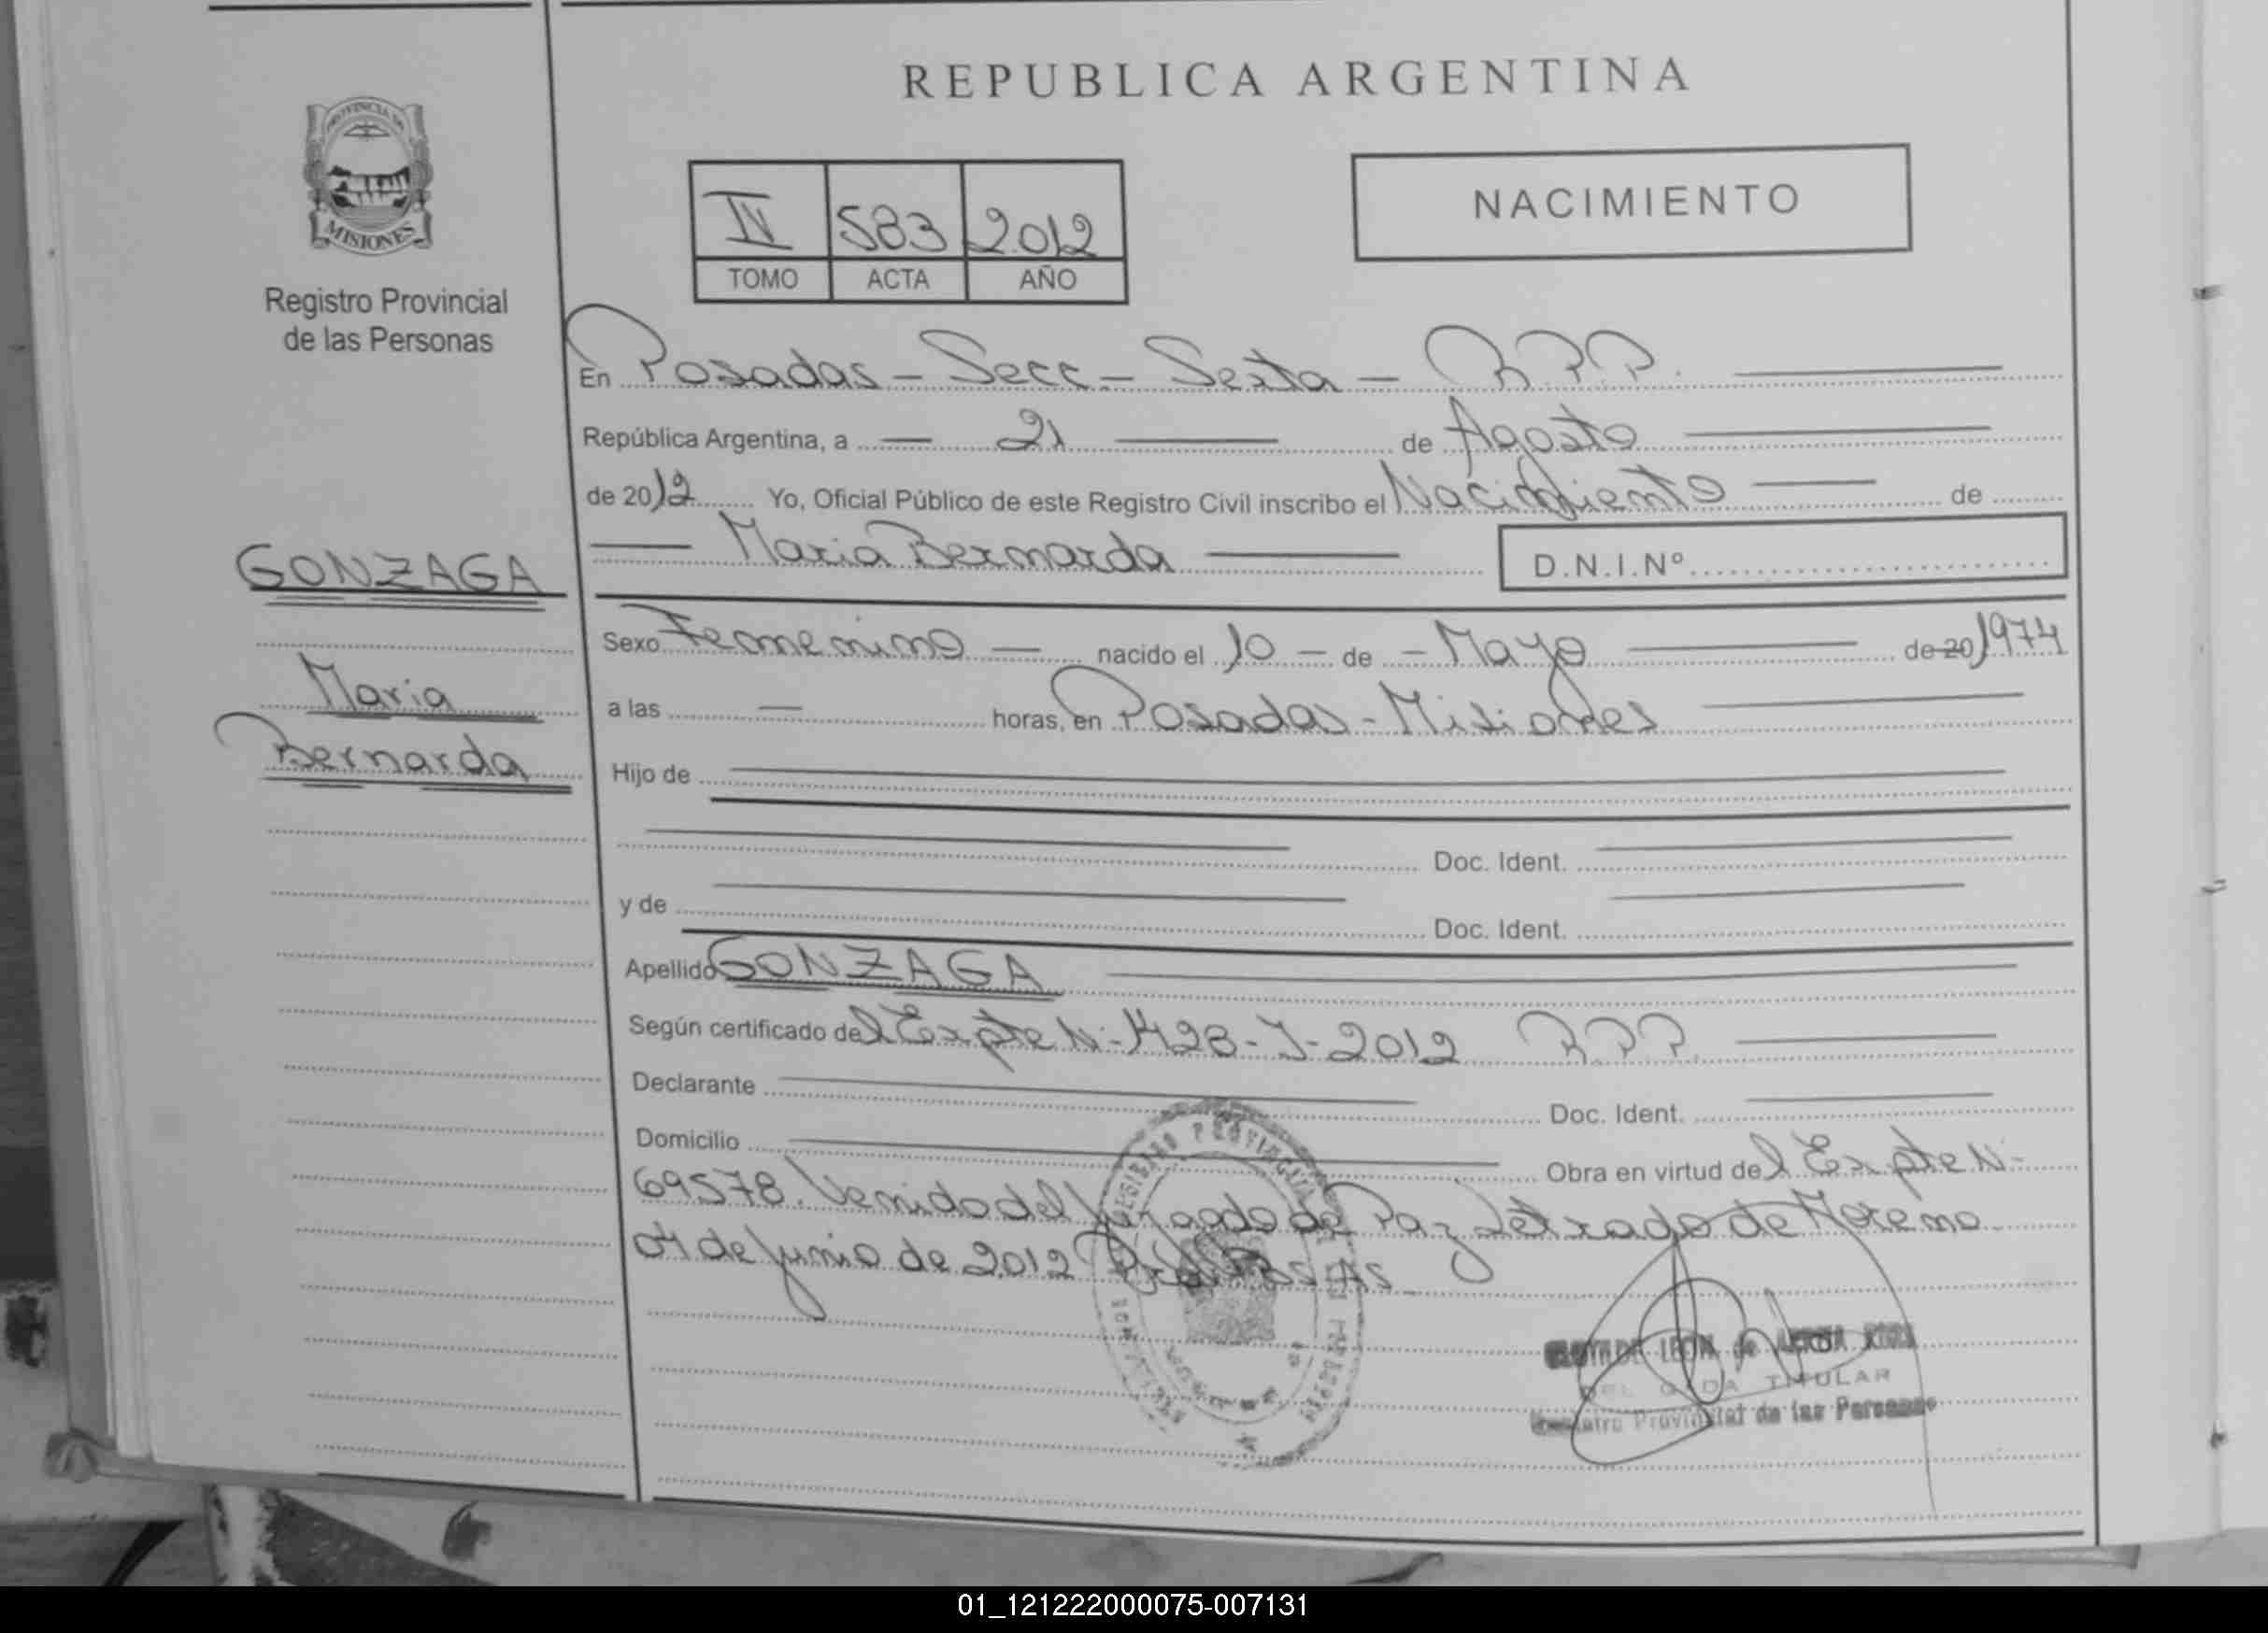 REPUBLICA ARGENTINA
PROVINCIA DE
MISIONES
Registro Provincial
de las Personas
IV 583 2012
TOMO ACTA AÑO
NACIMIENTO
En Posadas - Secc - Sexta - R.P.P.
República Argentina, a 21 de Agosto
de 2012 Yo, Oficial Público de este Registro Civil inscribo el Nacimiento de
Maria Bernarda D.N.I.Nº
GONZAGA
Maria
Bernarda
Sexo Femenino nacido el 10 - de - Mayo de 20 1974
a las — horas, en Posadas - Misiones
Hijo de
Doc. Ident.
y de Doc. Ident.
Apellido GONZAGA
Según certificado del Expte N- 1428-J-2012 R.P.P.
Declarante Doc. Ident.
Domicilio Obra en virtud del Expte N-
69578. Venido del Juzgado de Paz Letrado de Moreno
04 de Junio de 2012
TITULAR
Provincial de las Personas
01_121222000075-007131